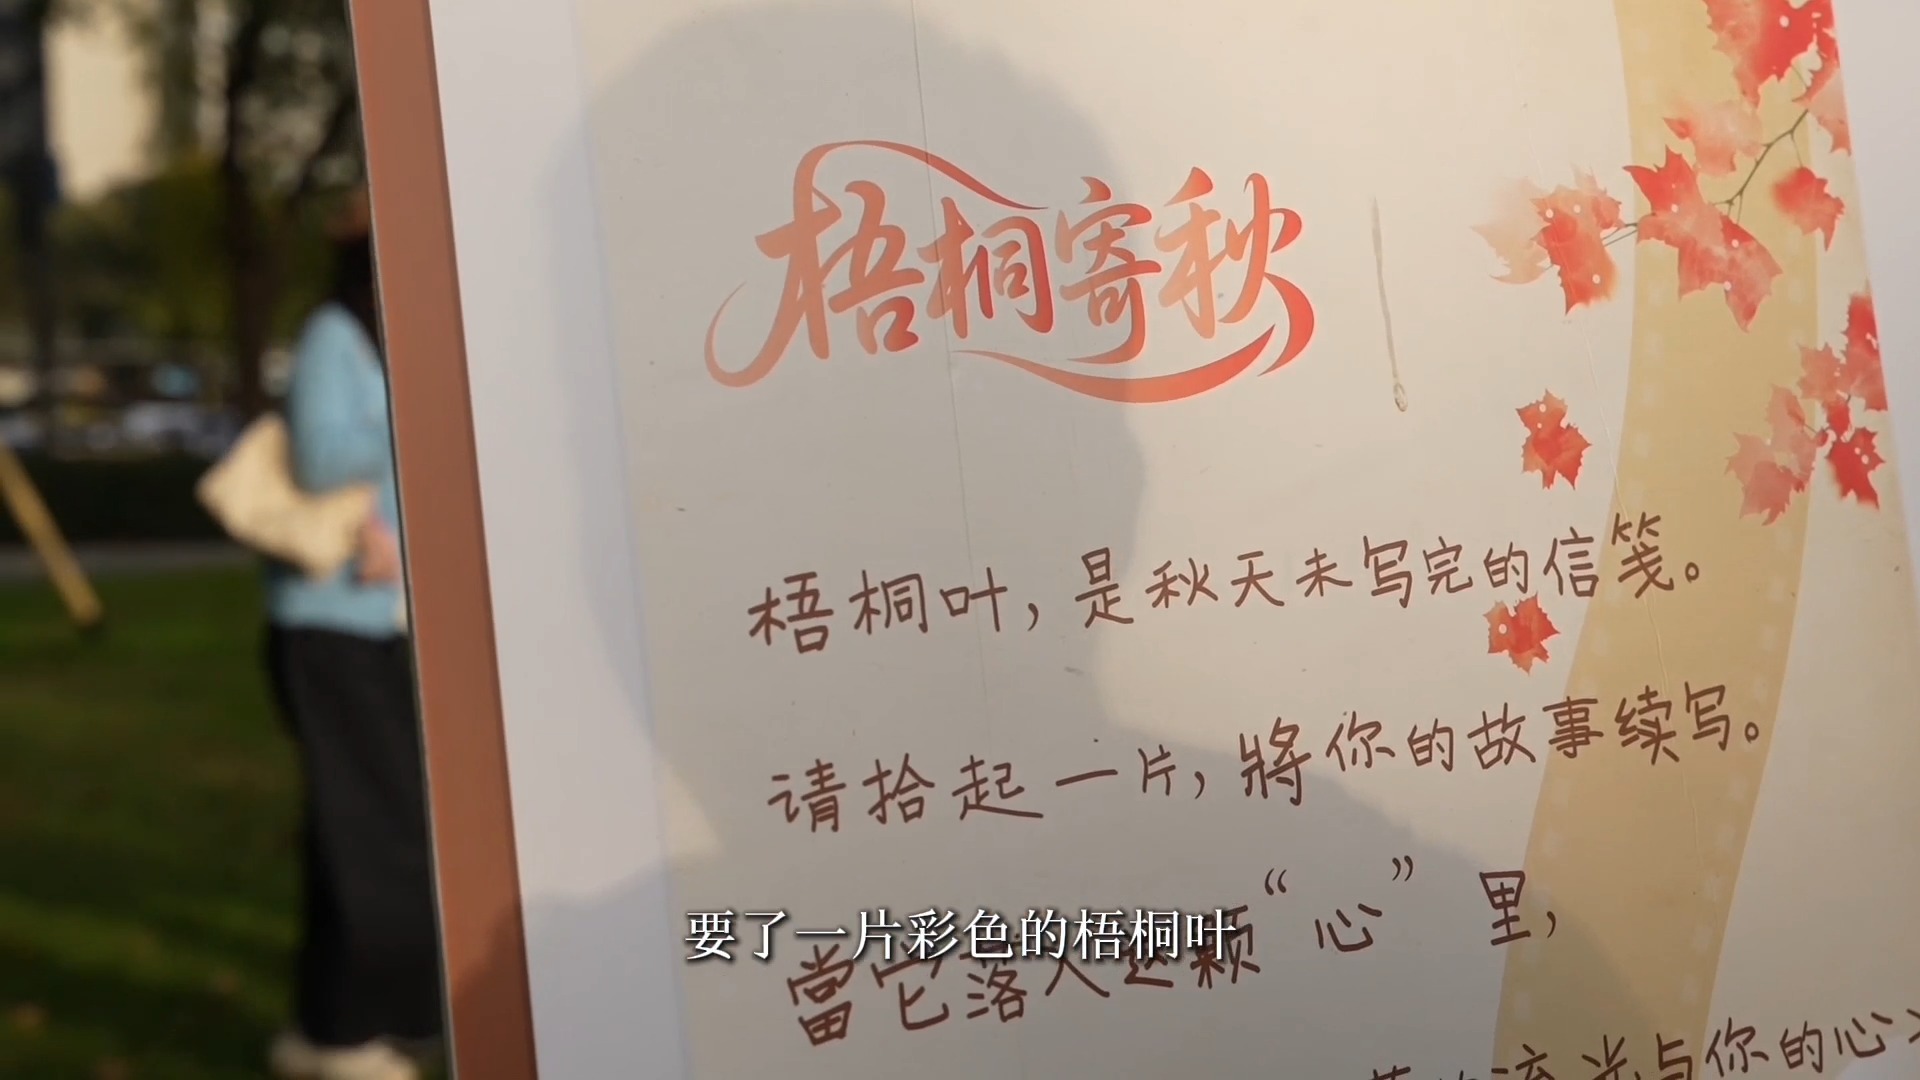 梧桐寄秋
梧桐叶，是秋天未写完的信笺。
请拾起一片，將你的故事续写。
當它落入这颗“心”里，
要了一片彩色的梧桐叶
流光与你的心